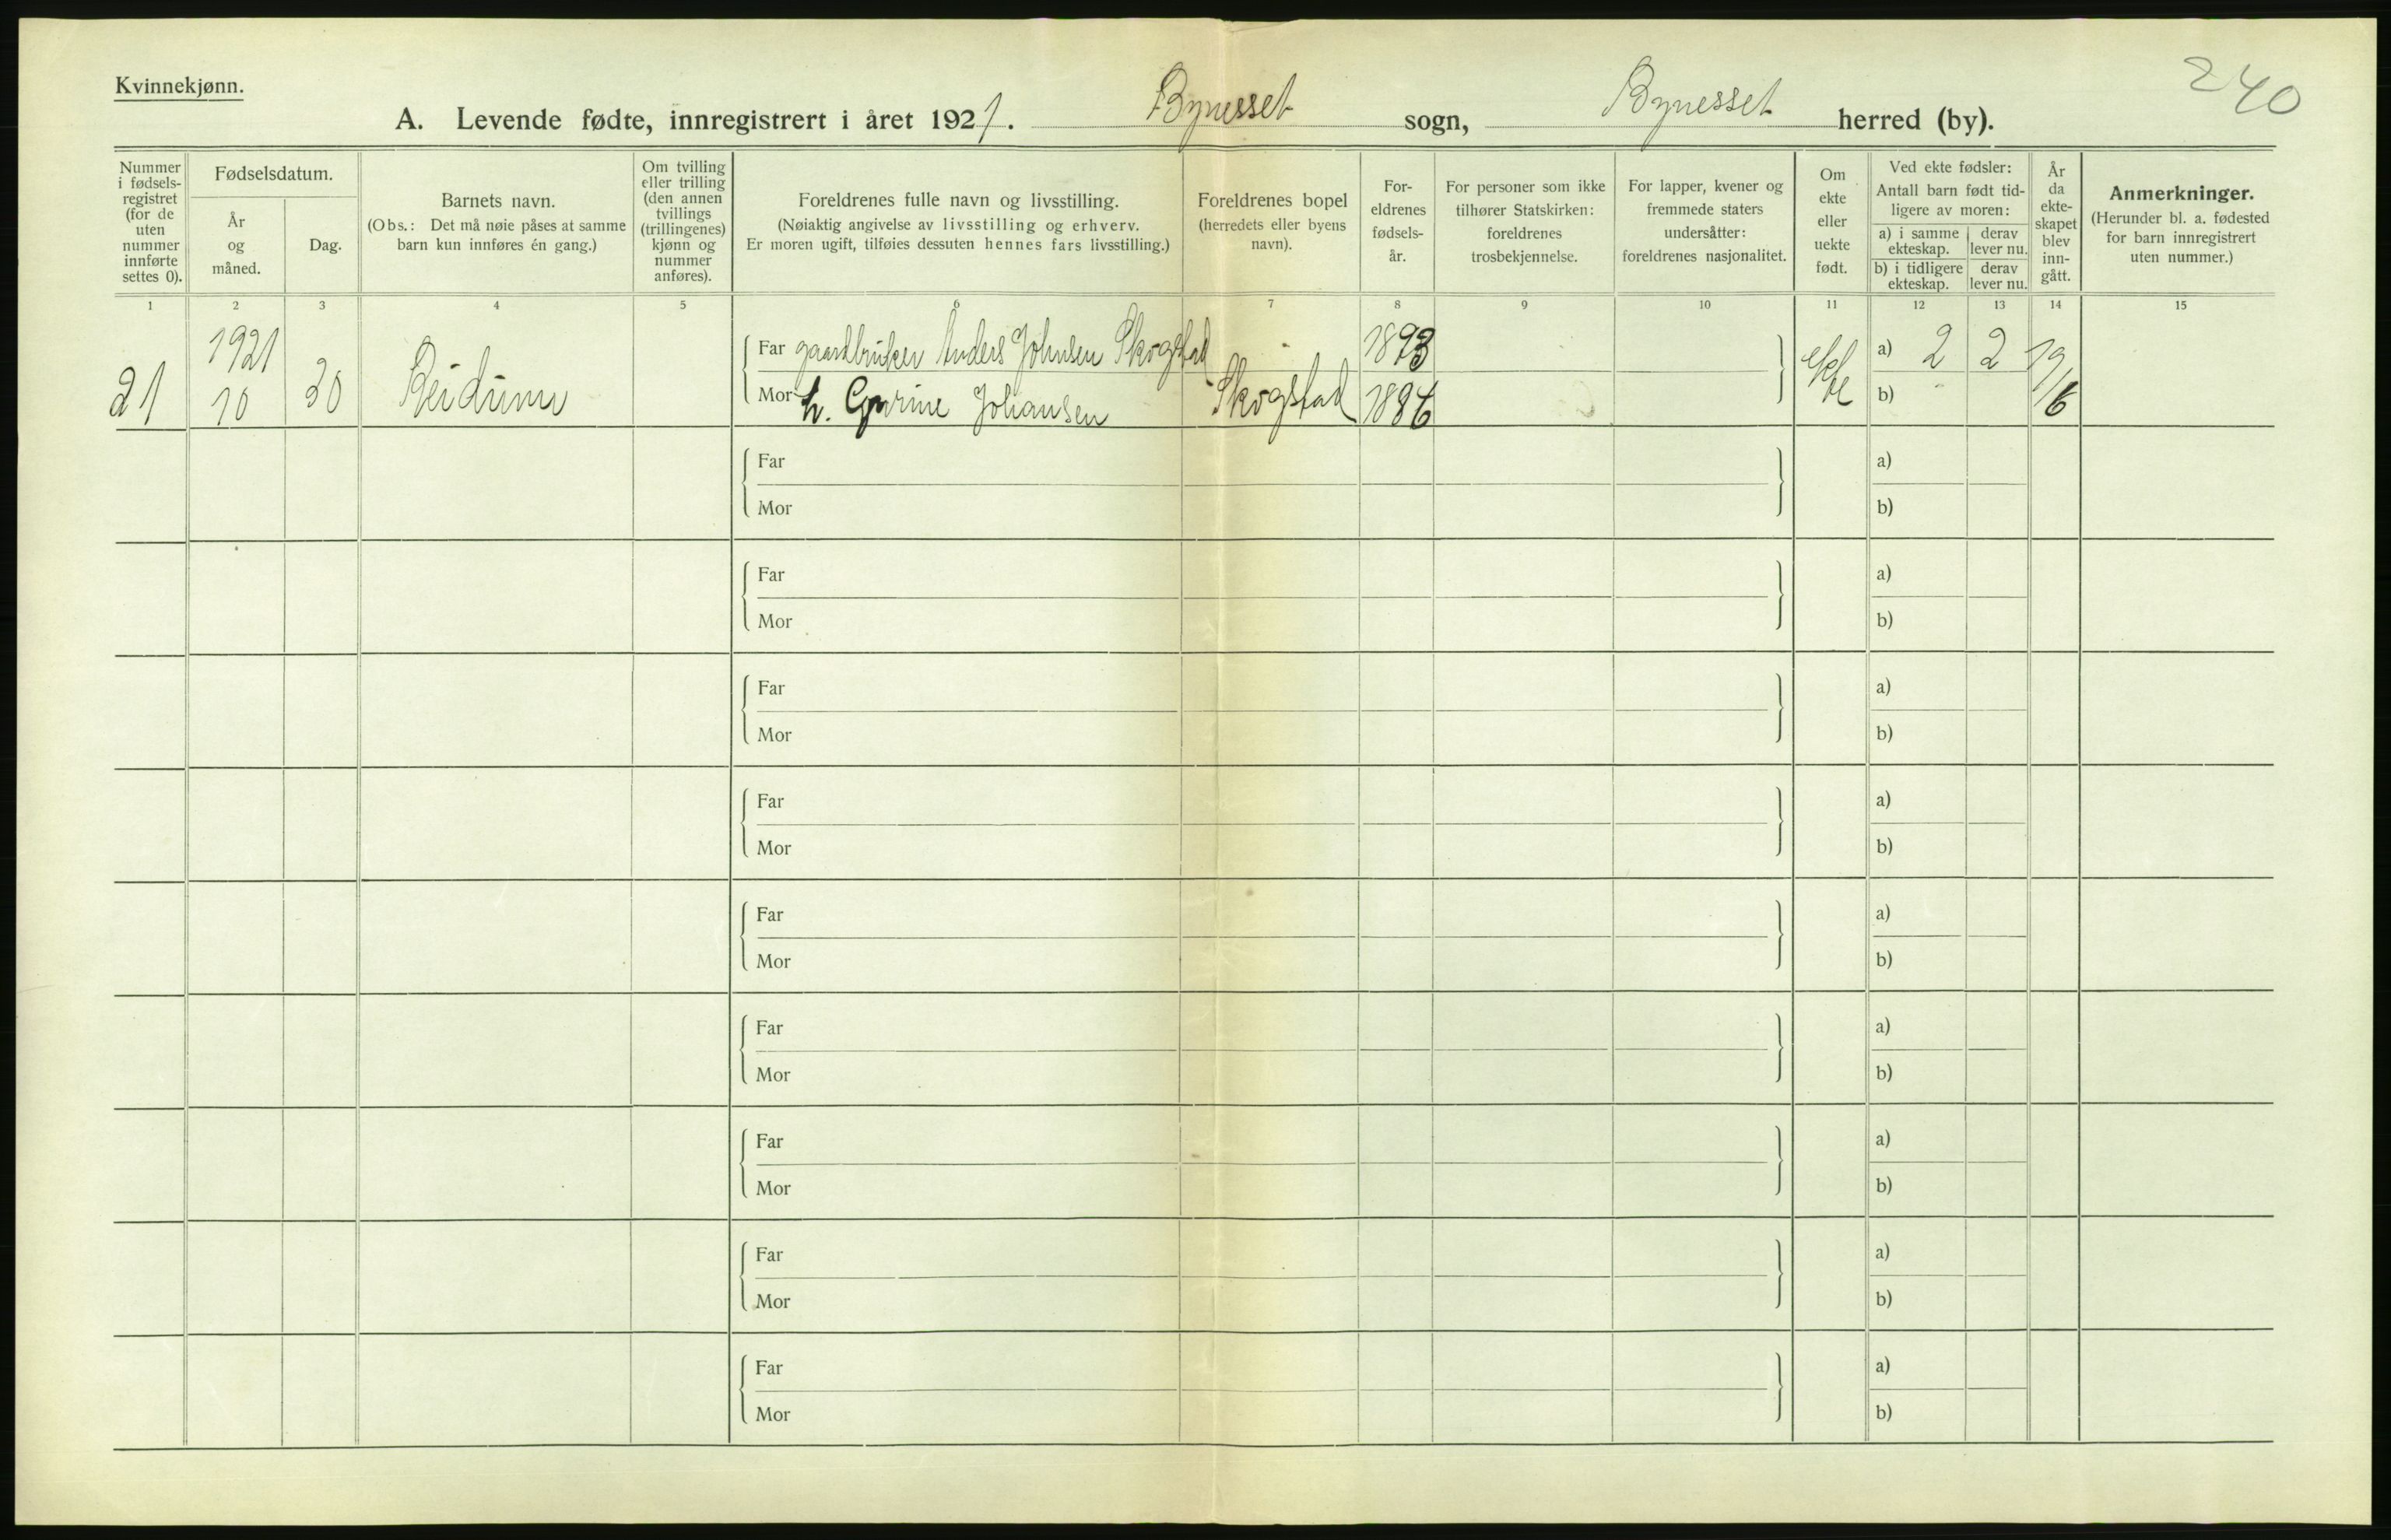 Kvinnekjønn.
240
A. Levende fødte, innregistrert i året 1921. Bynesset sogn, Bynesset herred (by).
Nummer i fødsels-registret (for de uten nummer innførte settes 0).
Fødselsdatum.
År og måned.
Dag.
Barnets navn.
(Obs.: Det må nøie påses at samme barn kun innføres én gang.)
Om tvilling eller trilling (den annen tvillings (trillingenes) kjønn og nummer anføres).
Foreldrenes fulle navn og livsstilling.
(Nøiaktig angivelse av livsstilling og erhverv.
Er moren ugift, tilføies dessuten hennes fars livsstilling.)
Foreldrenes bopel
(herredets eller byens navn).
For-eldrenes fødsels-år.
For personer som ikke tilhører Statskirken: foreldrenes trosbekjennelse.
For lapper, kvener og fremmede staters undersåtter: foreldrenes nasjonalitet.
Om ekte eller uekte født.
Ved ekte fødsler:
Antall barn født tid-ligere av moren:
a) i samme ekteskap.
derav lever nu.
b) i tidligere ekteskap.
derav lever nu.
År da ekte-skapet blev inn-gått.
Anmerkninger.
(Herunder bl. a. fødested for barn innregistrert uten nummer.)
1 2 3 4 5 6 7 8 9 10 11 12 13 14 15
1921 Far gaardbruker Anders Johnsen Skogstad 1893 ekte a) 2 2 19/16
21 10 30 Reidunn Mor h. Gurine Johansen Skogstad 1886 b)
Far a)
Mor b)
Far a)
Mor b)
Far a)
Mor b)
Far a)
Mor b)
Far a)
Mor b)
Far a)
Mor b)
Far a)
Mor b)
Far a)
Mor b)
Far a)
Mor b)